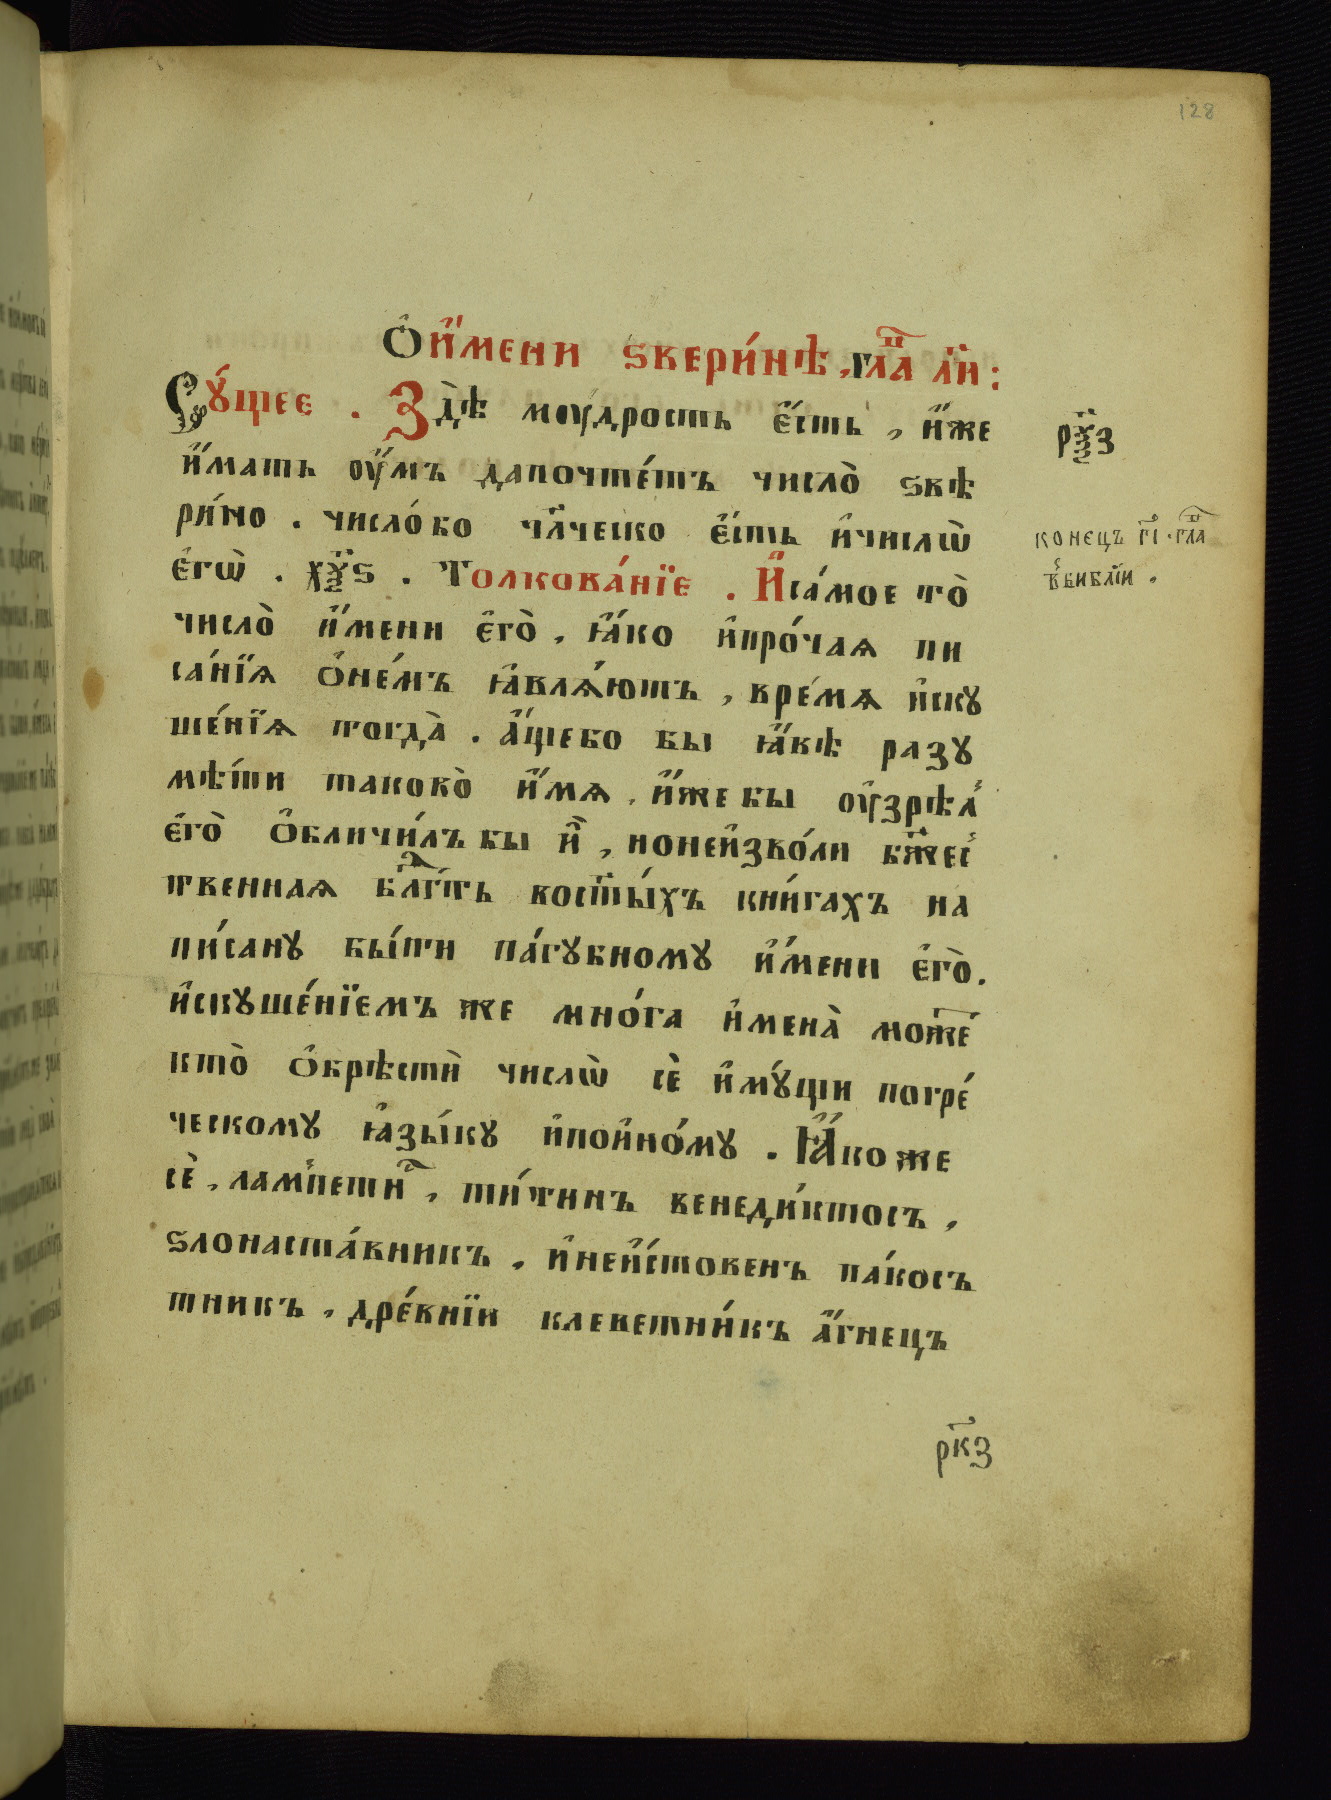 128
Ѻ҆ и҆́мени ѕвери́нѣ, гла҃ л҃и:
Су́щее. Здѣ̀ моудрость є҆́сть, и҆́же
и҆́мать оу҆́мъ да почте́тъ число̀ ѕвѣ
ри́но. число́ бо чл҃ческо є҆́сть и҆ число̀ѡ
є҆гѡ̀. х҃ѯѕ. Толкова́нїе. И҆ са́мое то̀
число̀ и҆́мени є҆го̀, ꙗ҆́ко и҆ про́чаѧ пи
са́нїѧ ѻ҆ не́мъ ꙗ҆влѧ́ютъ, вре́мѧ и҆скꙋ
ше́нїѧ тогда̀. а҆́ще бо бы ꙗ҆́вѣ разꙋ
мѣ́ти таково̀ и҆́мѧ, и҆́же бы оу҆зрѣл
є҆го̀ ѻ҆бличи́лъ бы и҆̀, но не и҆зво́ли бж҃ес
твеннаѧ бл҃гть во ст҃ы́хъ кни́гахъ на
пи́санꙋ бы́ти па́гꙋбномꙋ и҆́мени є҆го̀.
и҆скꙋше́нїемъ же мно́га и҆мена̀ може́
кто̀ ѻ҆брѣстѝ числѡ̀ сѐ и҆мꙋ́щи по гре́
ческомꙋ ꙗ҆зы́кꙋ и҆ по и҆но́мꙋ. Ꙗ҆́коже
сѐ, лампети, ти́тинъ венеди́ктосъ,
ѕлонаста́вникъ, и҆ неи҆́стовенъ па́кос
тникъ, дре́внїи клеветни́къ а҆́гнецъ
рк҃з
рѯ҃з
конецъ г҃і гла҃
в библїи.